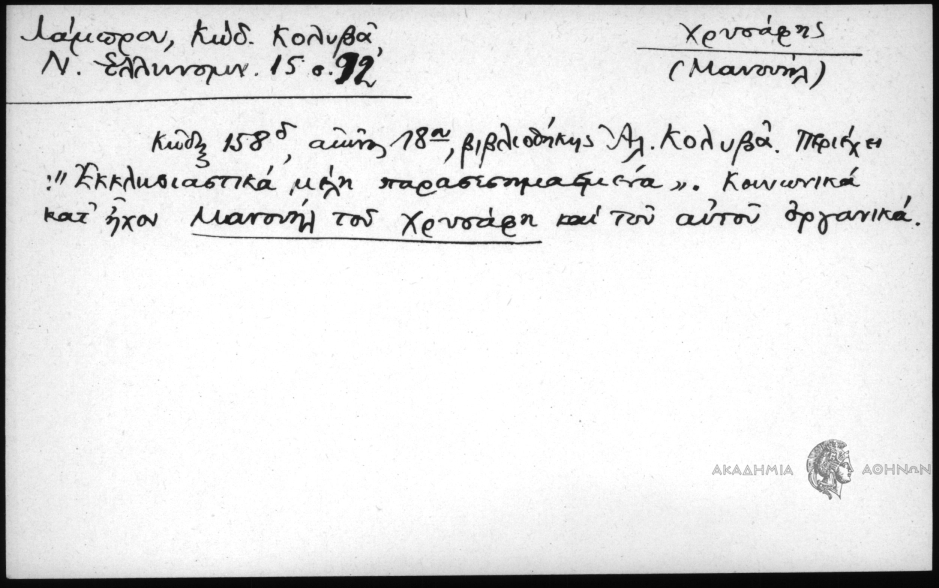 Λάμπρου, Κώδ. Κολυβᾶ,
Ν. Ἑλληνομν. 15 σ. 92
Χρυσάφης
(Μανουήλ)
Κῶδιξ 158δ, αἰῶνος 18ου, βιβλιοθήκης Ἀλ. Κολυβᾶ. Περιέχει
:" Ἐκκλησιαστικά μέλη παρασεσημασμένα ». Κοινωνικά
κατ' ἦχον Μανουήλ τοῦ Χρυσάφη καί τοῦ αὐτοῦ ὀργανικά.
ΑΚΑΔΗΜΙΑ ΑΘΗΝΩΝ